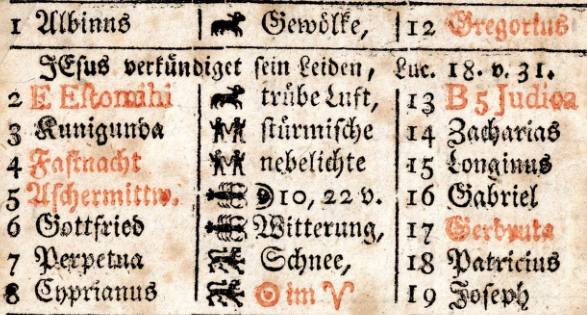 1 Albinus Gewölke, 12 Gregorius
JEsus verkündiget sein Leiden, Luc. 18. v. 31.
2 E Estomihi trübe Luft, 13 B 5 Judica
3 Kunigunda stürmische 14 Zacharias
4 Fastnacht nebelichte 15 Longinus
5 Aschermittw. ☽ 10, 22 v. 16 Gabriel
6 Gottfried Witterung, 17 Gerdruta
7 Perpetua Schnee, 18 Patricius
8 Cyprianus ☉ im ♈ 19 Joseph